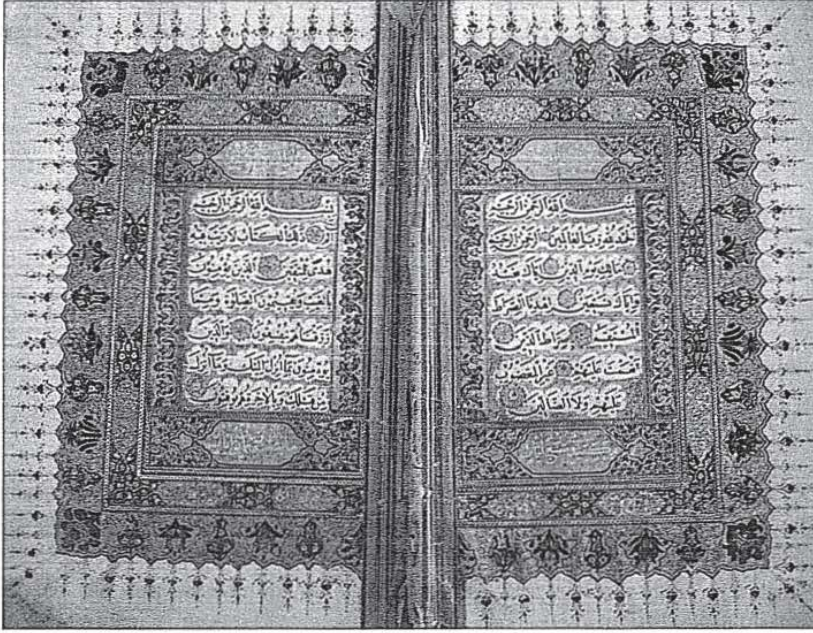 بسم الله الرحمن الرحيم
الحمد لله رب العالمين الرحمن الرحيم
مالك يوم الدين اياك نعبد
واياك نستعين اهدنا الصراط
المستقيم صراط الذين
انعمت عليهم غير المغضوب
عليهم ولا الضالين
بسم الله الرحمن الرحيم
الم ذلك الكتاب لا ريب فيه
هدى للمتقين الذين يؤمنون
بالغيب ويقيمون الصلوة ومما
رزقناهم ينفقون والذين
يؤمنون بما انزل اليك وما انزل
من قبلك وبالاخرة هم يوقنون